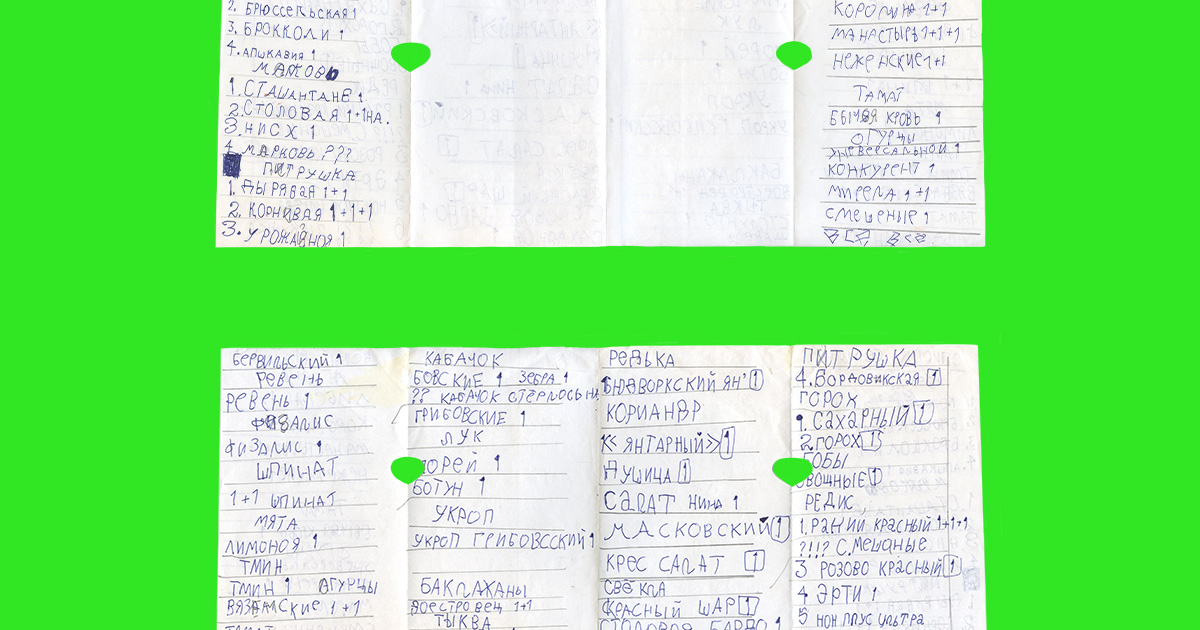 2. БРЮССЕЛЬСКАЯ 1
3. БРОККОЛИ 1
4. АПШКАВИЯ 1
МАКОВЬ
1. СТАШАНТАНЕ 1
2. СТОЛОВАЯ 1+1НА.
3. НИСХ 1
4. МАРКОВЬ Р??
ПИТРУШКА
1. ДЫРЯВАЯ 1+1
2. КОРНИВАЯ 1+1+1
3. УРОЖАЙНОЯ 1
КОРОЛИНА 1+1
МАНАСТЫРЕ 1+1+1
НЕЖЕНСКИЕ 1+1
ТАМАТ
БЫЧЬЯ КРОВЬ 1
ОГУРЦЫ
УНЕВЕРСАЛЬНОЙ 1
КОНКУРЕНТ 1
МИРЕЛА 1+1
СМЕШЕНЫЕ 1
БЕРВИЛЬСКИЙ 1
РЕВЕНЬ
РЕВЕНЬ 1
ФИЗАЛИС
ФИЗАЛИС 1
ШПИНАТ
1+1 ШПИНАТ
МЯТА
ЛИМОНОЯ 1
ТМИН
ТМИН 1 ОГУРЦЫ
ВЯЗАМСКИЕ 1+1
ТАМАТ
КАБАЧОК
БОВСКИЕ 1 ЗЕБРА 1
?? КАБАЧОК СТЁРЛОСЬ
ГРИБОВСКИЕ 1
ЛУК
ПОРЕЙ 1
БОТУН 1
УКРОП
УКРОП ГРИБОВССКИЙ 1
БАКЛАЖАНЫ
ВОЕСТРОВЕЦ 1+1
ТЫКВА
РЕДЬКА
БНЮВОРКСКИЙ ЯН' 1
КОРИАНДР
«ЯНТАРНЫЙ» 1
ДУШИЦА 1
САЛАТ НИНА 1
МАСКОВСКИЙ 1
КРЕС САЛАТ 1
СВЁКЛА
КРАСНЫЙ ШАР 1
СТОЛОВОЯ БАРДО 1
ПИТРУШКА
4. БОРДОВИКСКАЯ 1
ГОРОХ
1. САХАРНЫЙ 1
2. ГОРОХ 1
БОБЫ
ОВОЩНЫЕ 1
РЕДИС
1. РАНИЙ КРАСНЫЙ 1+1+1
?!!? С.МЕШАНЫЕ
3 РОЗОВО КРАСНЫЙ 1
4 ЭРТИ 1
5 НОН ПЛУС УЛЬТРА